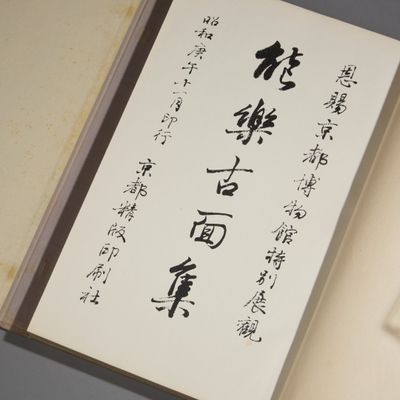 恩賜京都博物館特別展観
能樂古面集
昭和庚午十一月印行
京都精版印刷社